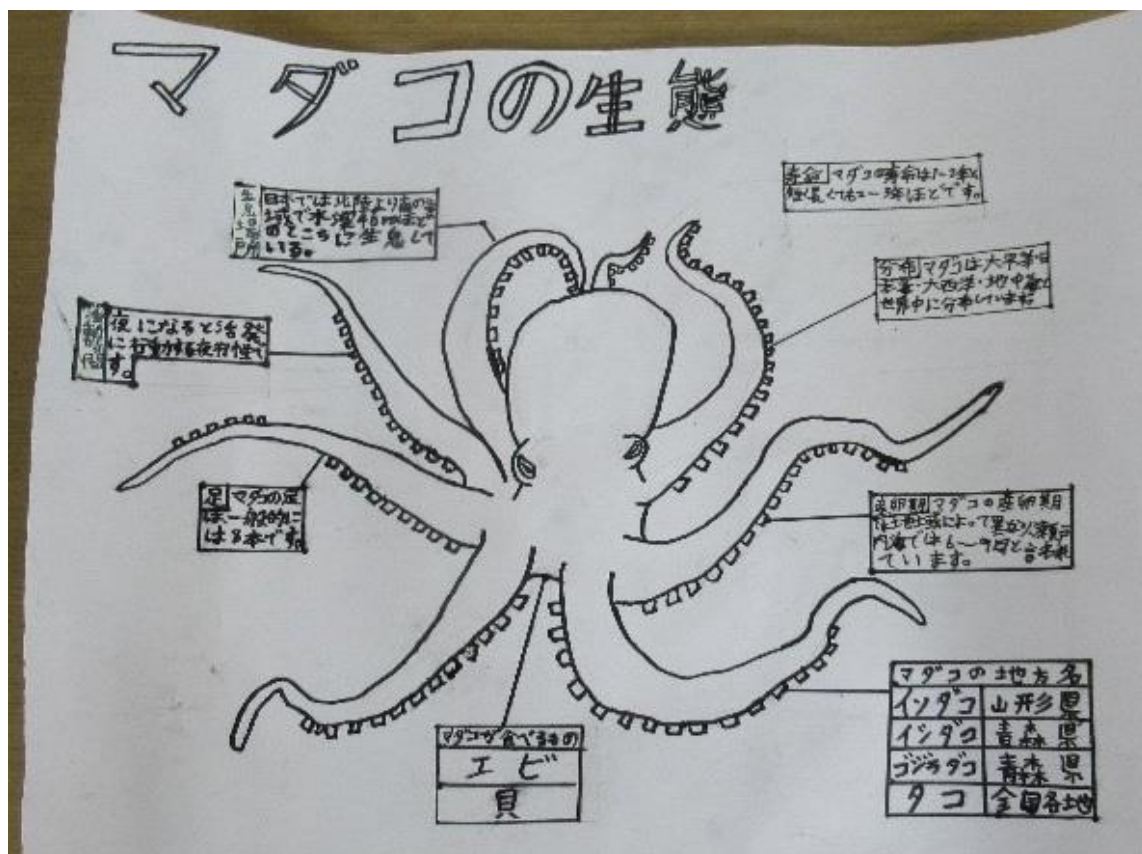 マダコの生態
生息場所
日本では北陸より南の海
域で水深40mほど
のところに生息して
いる。
寿命 マダコの寿命は1~2年と
短く長くても2~3年ほどです。
分布 マダコは太平洋・日
本海・大西洋・地中海と
世界中に分布しています
活動時間
夜になると活発
に行動する夜行性で
す。
足 マダコの足
は一般的に
は8本です。
産卵期 マダコの産卵期
は地域によって異なり瀬戸
内海では6~9月と言われ
ています。
マダコが食べるもの
エビ
貝
マダコの地方名
イソダコ 山形県
イシダコ 青森県
ゴジラダコ 青森県
タコ 全国各地